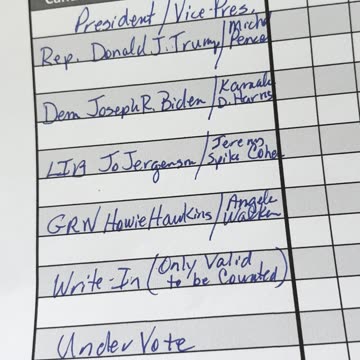 President / Vice-Pres.
Rep. Donald J. Trump / Pence
Dem Joseph R. Biden / Kamala
D. Harris
LIB Jo Jorgensen / Jeremy
Spike Cohen
GRN Howie Hawkins / Angela
Walker
Write-In (Only Valid
to be Counted)
Under Vote